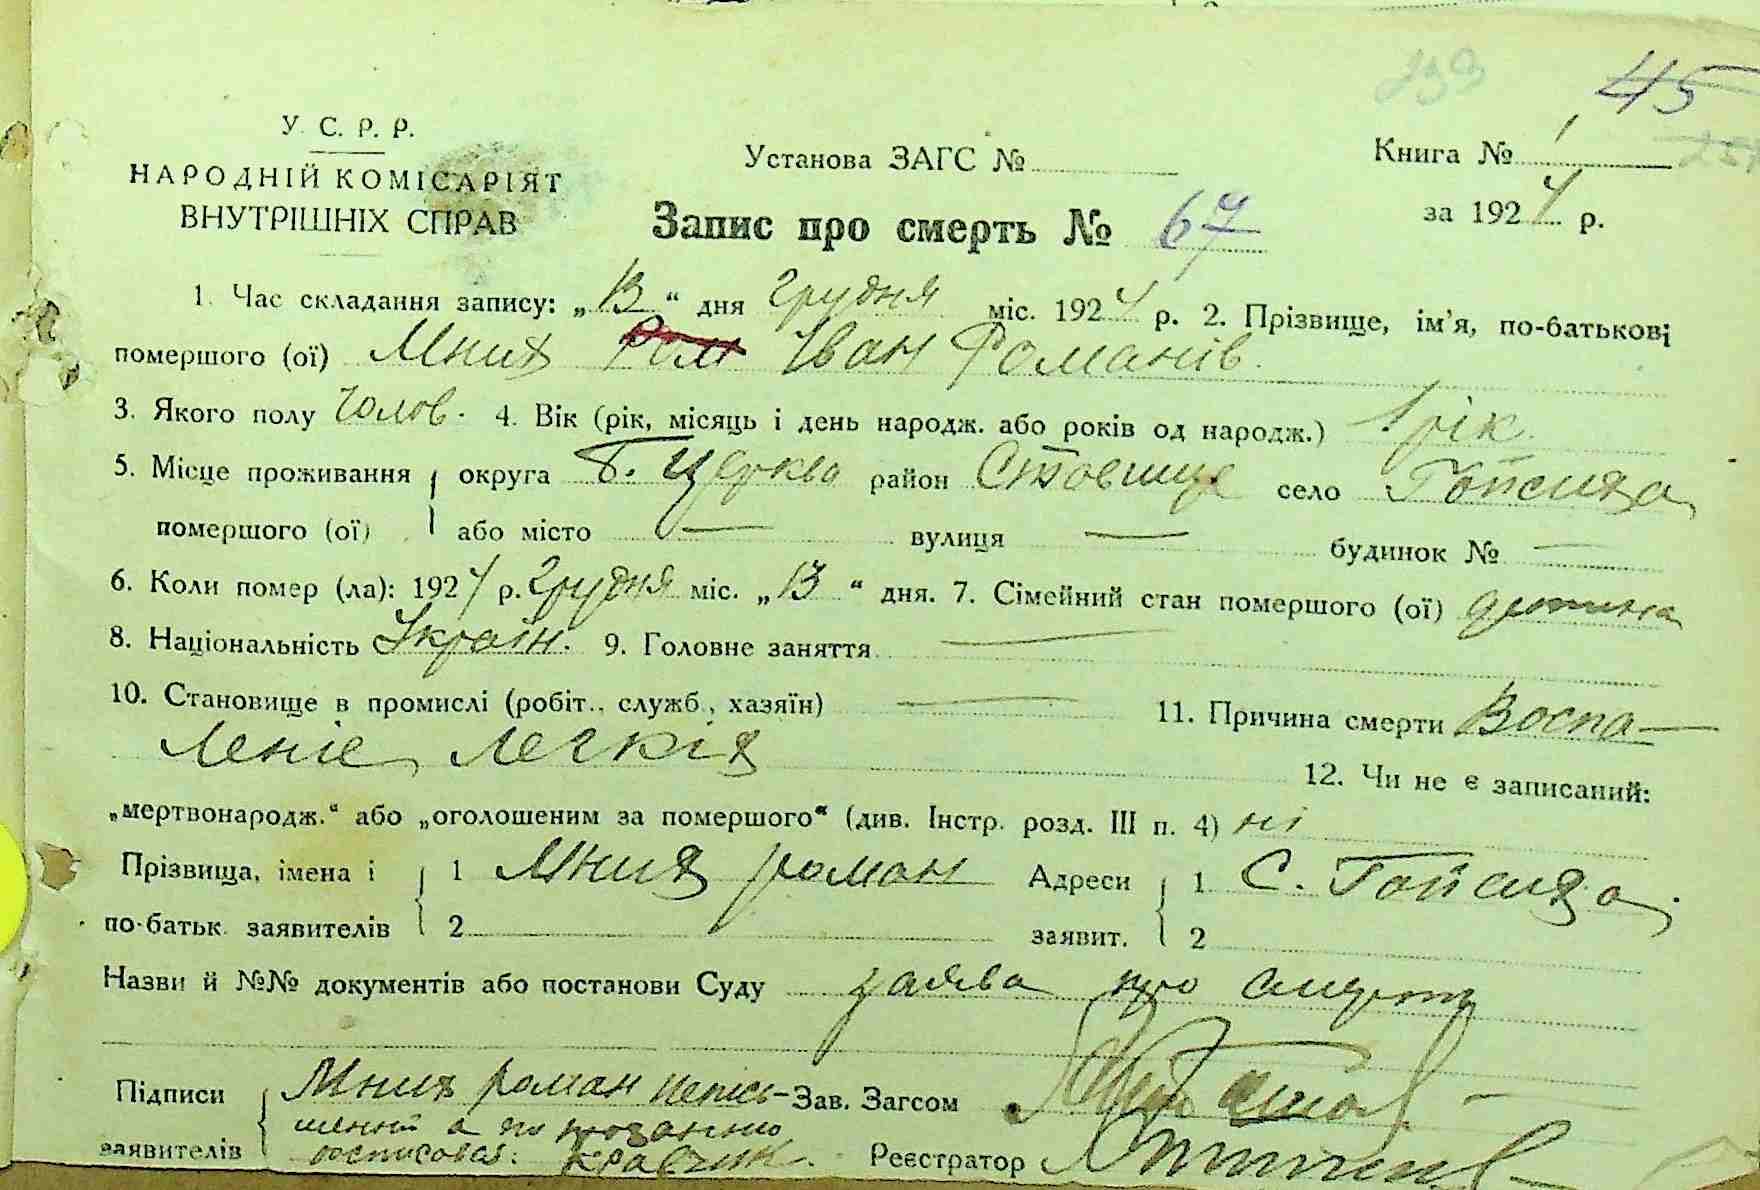 239
45
У. С. Р. Р.
НАРОДНІЙ КОМІСАРІЯТ
ВНУТРІШНІХ СПРАВ
Установа ЗАГС №
Книга № 1
за 1924 р.
Запис про смерть № 67
1. Час складання запису: „13“ дня грудня міс. 1924 р. 2. Прізвище, ім’я, по-батькові
помершого (ої) Мних Ром Іван Романів
3. Якого полу чолов. 4. Вік (рік, місяць і день народж. або років од народж.) 1 рік.
5. Місце проживання помершого (ої) округа Б. Церква район Ставище село Гопсиха
або місто — вулиця — будинок № —
6. Коли помер (ла): 1924 р. грудня міс. „13“ дня. 7. Сімейний стан помершого (ої) дитина
8. Національність Україн. 9. Головне заняття —
10. Становище в промислі (робіт., служб., хазяїн) — 11. Причина смерти Воспа—
леніе легкія
12. Чи не є записаний:
„мертвонародж.“ або „оголошеним за помершого“ (див. Інстр. розд. III п. 4) ні
Прізвища, імена і по-батьк. заявителів 1 Мних роман Адреси заявит. 1 С. Гопсиха.
2 2
Назви й №№ документів або постанови Суду заява про смерть
Підписи заявителів Мних роман непись- Зав. Загсом
менний а по проханню
росписався: Кравчик. Реєстратор